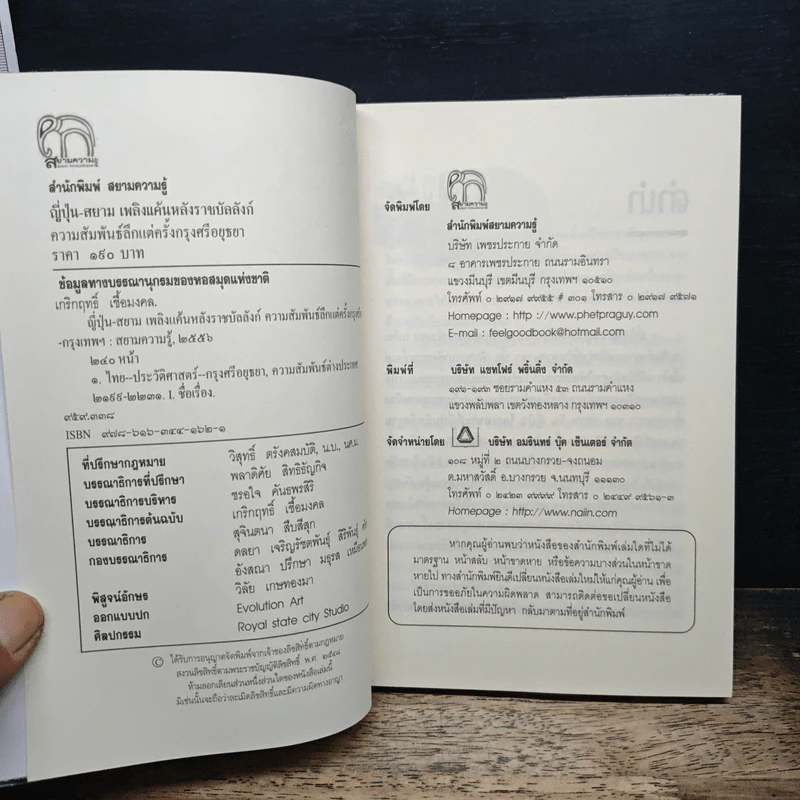 สยามความรู้
สำนักพิมพ์ สยามความรู้
ญี่ปุ่น-สยาม เพลิงแค้นหลังราชบัลลังก์
ความสัมพันธ์ลึกแต่ครั้งกรุงศรีอยุธยา
ราคา ๑๙๐ บาท
ข้อมูลทางบรรณานุกรมของหอสมุดแห่งชาติ
เกริกฤทธิ์ เชื้อมงคล.
ญี่ปุ่น-สยาม เพลิงแค้นหลังราชบัลลังก์ ความสัมพันธ์ลึกแต่ครั้งกรุงศรี
-กรุงเทพฯ : สยามความรู้, ๒๕๕๖
๒๔๐ หน้า
๑. ไทย--ประวัติศาสตร์--กรุงศรีอยุธยา, ความสัมพันธ์ต่างประเทศ
๒๑๙๙-๒๒๓๑. I. ชื่อเรื่อง.
๙๕๙.๓๓๘
ISBN ๙๗๘-๖๑๖-๓๔๔-๑๖๒-๑
ที่ปรึกษากฎหมาย วิสุทธิ์ ตรังคสมบัติ, น.บ., นศ.ม.
บรรณาธิการที่ปรึกษา พลาดิศัย สิทธิธัญกิจ
บรรณาธิการบริหาร ชรอใจ คันธพรสิริ
บรรณาธิการต้นฉบับ เกริกฤทธิ์ เชื้อมงคล
บรรณาธิการ สุจินตนา สืบสีสุก
กองบรรณาธิการ ดลยา เจริญรัชตพันธุ์ สิริพันธุ์
อังสณา ปรึกษา มธุรส
พิสูจน์อักษร วิลัย เกษทองมา
ออกแบบปก Evolution Art
ศิลปกรรม Royal state city Studio
© ได้รับการอนุญาตจัดพิมพ์จากเจ้าของลิขสิทธิ์ตามกฎหมาย
สงวนลิขสิทธิ์ตามพระราชบัญญัติลิขสิทธิ์ พ.ศ. ๒๕๔๘
ห้ามลอกเลียนส่วนหนึ่งส่วนใดของหนังสือเล่มนี้
มิเช่นนั้นจะถือว่าละเมิดลิขสิทธิ์และมีความผิดทางอาญา
จัดพิมพ์โดย สยามความรู้
สำนักพิมพ์สยามความรู้
บริษัท เพชรประกาย จำกัด
๘ อาคารเพชรประกาย ถนนรามอินทรา
แขวงมีนบุรี เขตมีนบุรี กรุงเทพฯ ๑๐๕๑๐
โทรศัพท์ ๐ ๒๙๑๗ ๙๙๕๕ # ๓๐๑ โทรสาร ๐ ๒๙๑๗ ๙๕๗๑
Homepage : http ://www.phetpraguy.com
E-mail : feelgoodbook@hotmail.com
พิมพ์ที่ บริษัท แชทโฟร์ พริ้นติ้ง จำกัด
๑๙๑-๑๙๓ ซอยรามคำแหง ๕๓ ถนนรามคำแหง
แขวงพลับพลา เขตวังทองหลาง กรุงเทพฯ ๑๐๓๑๐
จัดจำหน่ายโดย บริษัท อมรินทร์ บุ๊ค เซ็นเตอร์ จำกัด
๑๐๘ หมู่ที่ ๒ ถนนบางกรวย-จงถนอม
ต.มหาสวัสดิ์ อ.บางกรวย จ.นนทบุรี ๑๑๑๓๐
โทรศัพท์ ๐ ๒๔๒๓ ๙๙๙๙ โทรสาร ๐ ๒๔๔๙ ๙๕๖๑-๓
Homepage : http://www.naiin.com
หากคุณผู้อ่านพบว่าหนังสือของสำนักพิมพ์เล่มใดที่ไม่ได้
มาตรฐาน หน้าสลับ หน้าขาดหาย หรือข้อความบางส่วนในหน้าขาด
หายไป ทางสำนักพิมพ์ยินดีเปลี่ยนหนังสือเล่มใหม่ให้แก่คุณผู้อ่าน เพื่อ
เป็นการขออภัยในความผิดพลาด สามารถติดต่อขอเปลี่ยนหนังสือ
โดยส่งหนังสือเล่มที่มีปัญหา กลับมาตามที่อยู่สำนักพิมพ์